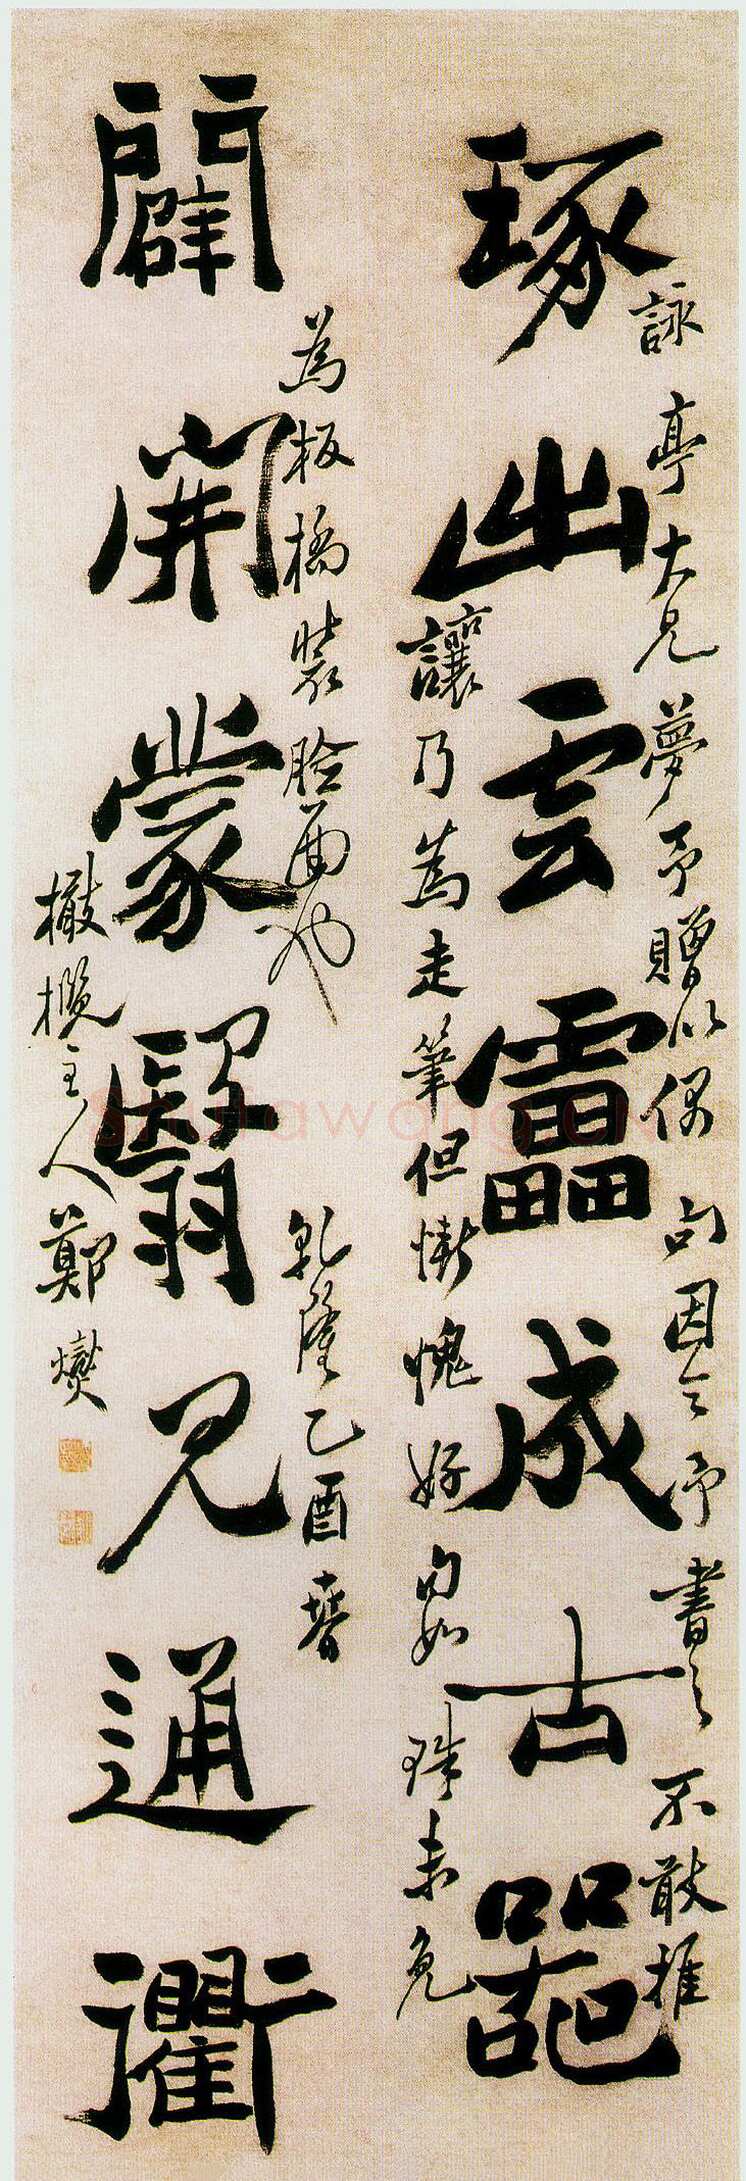 琢出雲雷成古器
詠亭大兄夢予贈以偶句因令予書之不敢推
讓乃為走筆但慚愧好句如珠未免
闢開蒙翳見通衢
為板橋裝臉面也
乾隆乙酉春
橄欖主人鄭燮
shufawang.cn